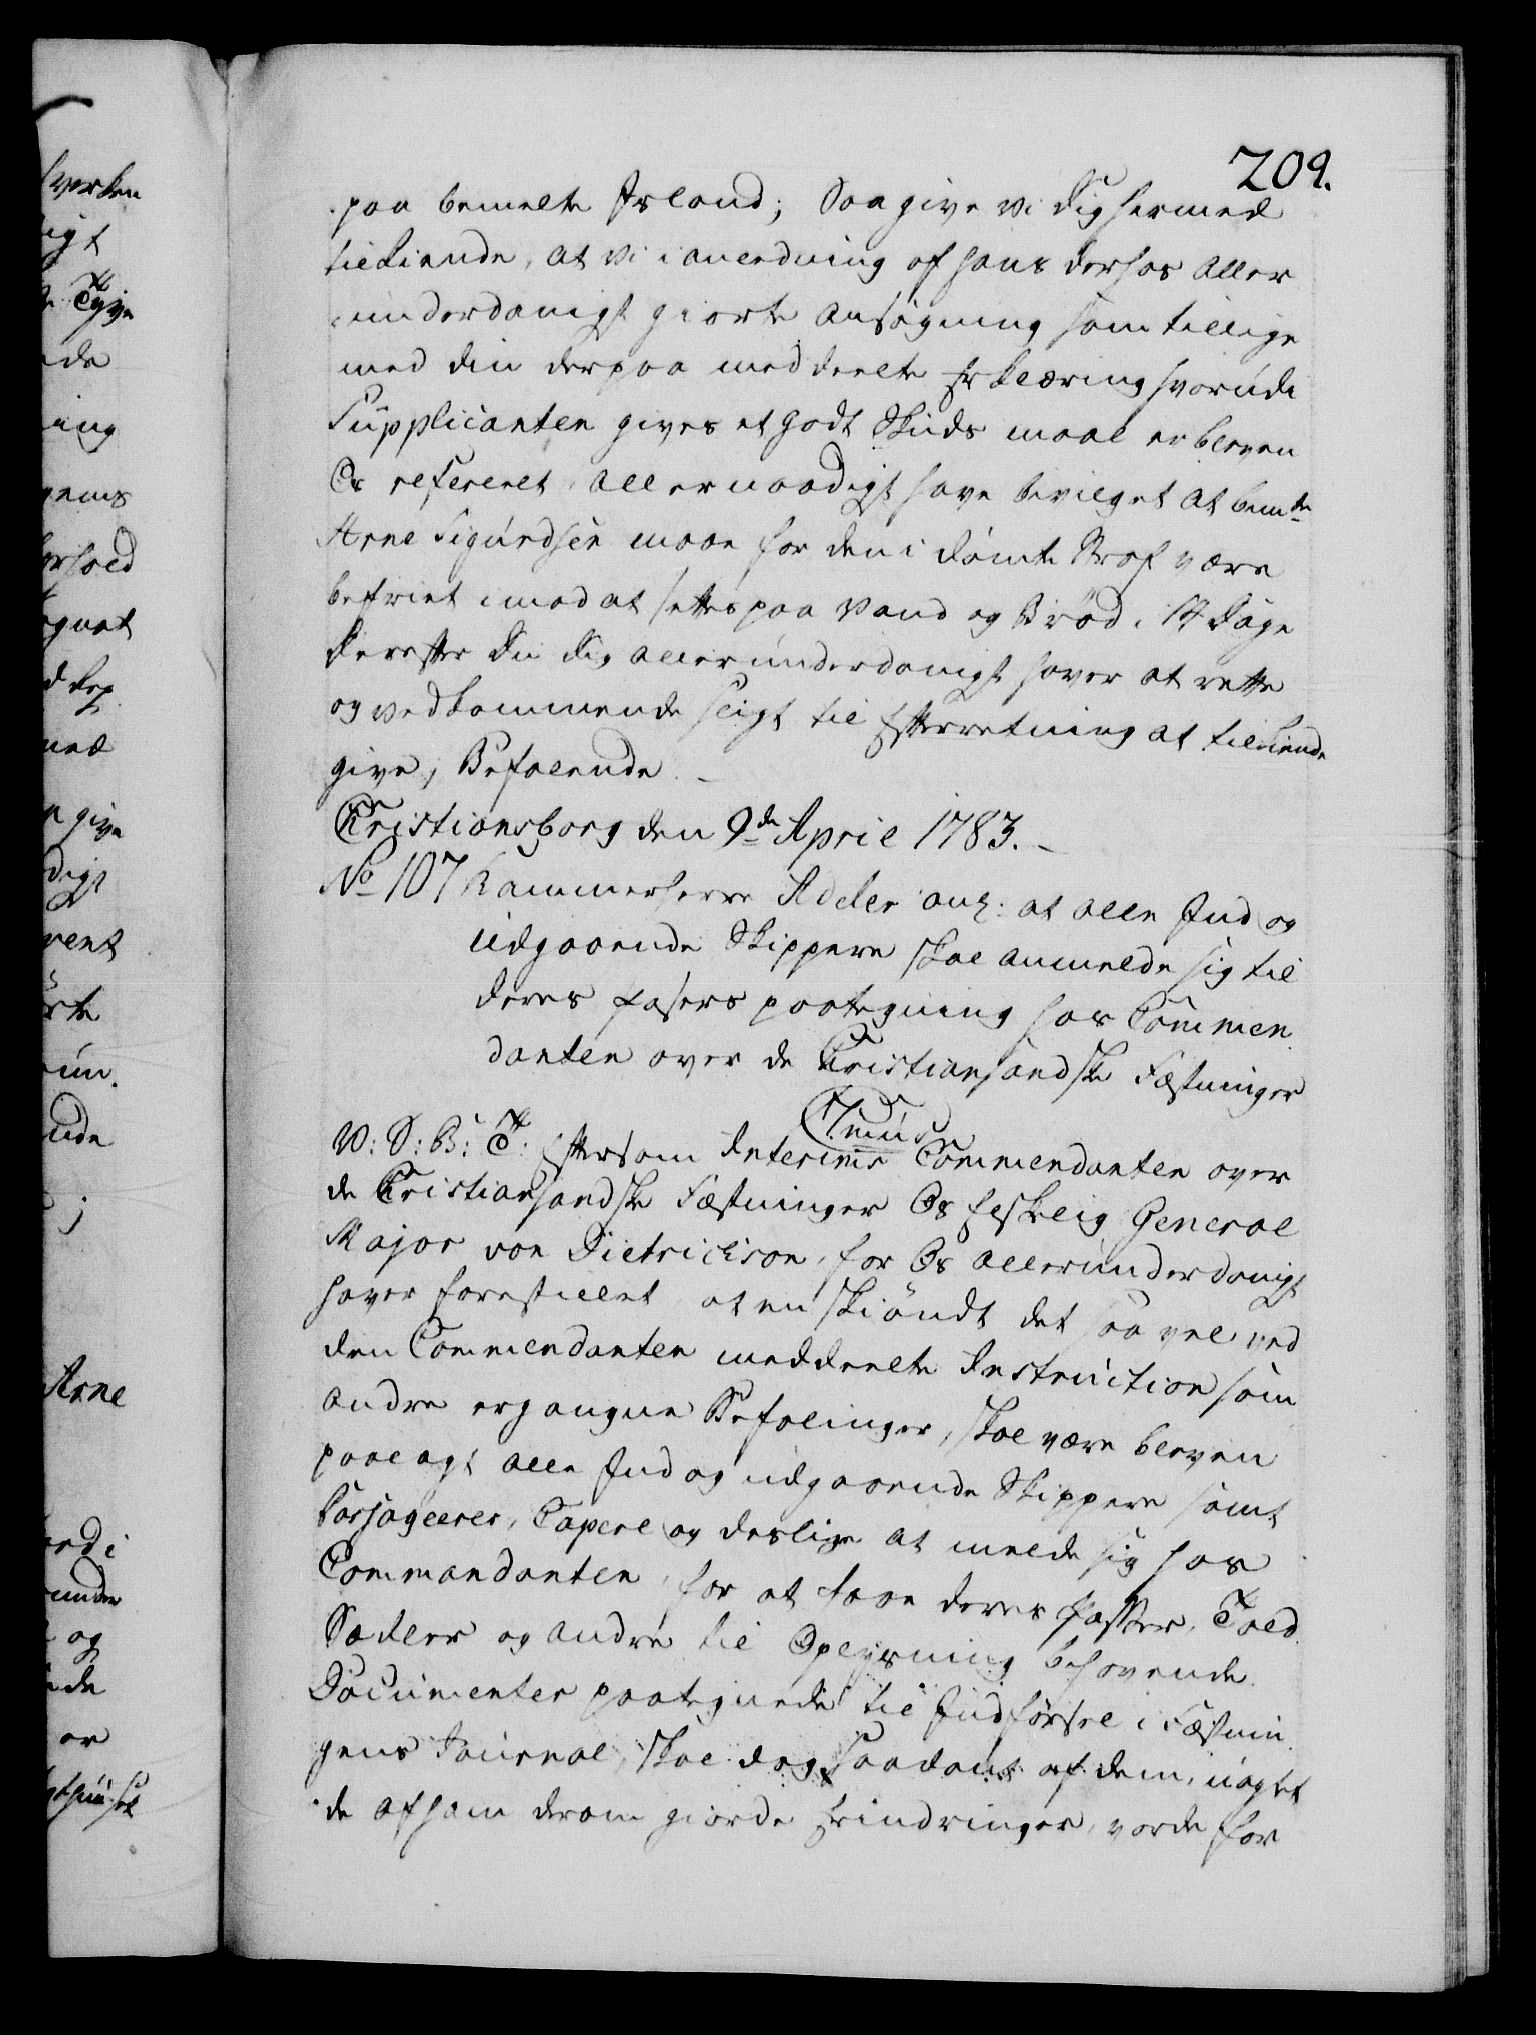 209.
paa bemelte Island; Saa give vi dig hermed
tilkiende, at Vi i anledning af hans derhos aller
underdanigst giorte Ansøgning som tillige
med din derpaa meddeelte Erklæring hvorudi
Supplicanten gives et godt Skudsmaal er bleven
Os refereret, allernaadigst have bevilget at bemte
Arne Sigurdsen maae for den idømte Straf være
befriet imod at settes paa Vand og Brød i 14 dage
Derefter du dig allerunderdanigst haver at rette
og vedkommende sligt til Efterretning at tilkiende
give, Befalende.
Christiansborg den 9de April 1783.
No 107 Kammerherre Adeler ang: at alle Ind og
udgaaende Skippere skal anmelde sig til
deres Passers paategning hos Commen
danten over de Christiansandske Fæstninger
V: S: B: T: Eftersom Interims Commendanten over
de Christiansandske Fæstninger Os Elskelig General
Major von Dietrichson, for Os allerunderdanigst
haver forestillet, at enskiøndt det saavel ved
den Commendanten meddeelte Instruction som
andre ergangne Befalinger, skal være bleven
paalagt alle Ind og udgaaende Skippere samt
Corsageerer, Capere og deslige at melde sig hos
Commandanten, for at faae deres Passer, Told
Sædler og andre til Oplysning behøvende
Documenter paategnede til Indførsel i Fæstnin
gens Journal, skal dog saadant af dem, uagtet
de af ham derom giorde Erindringer, vorde for